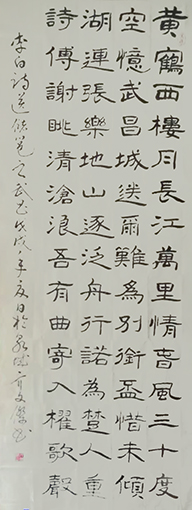 黃鶴西樓月長江萬里情春風三十度
空憶武昌城送爾難為別銜盃惜未傾
湖連張樂地山逐泛舟行諾為楚人重
詩傳謝朓清滄浪吾有曲寄入櫂歌聲
李白詩送儲邕之武昌戊戌年夏日於泉城 書